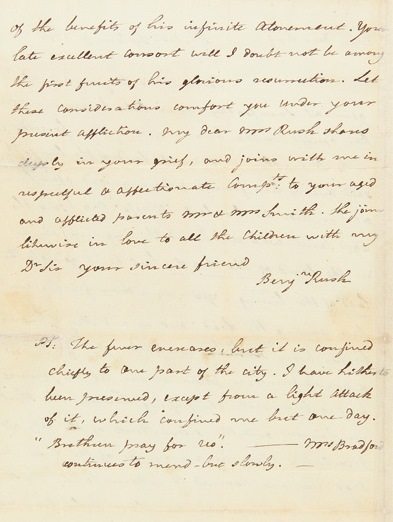 of the benefits of his infinite Atonement. Your
late excellent consort will I doubt not be among
the first fruits of his glorious resurrection. Let
these considerations comfort you under your
present affliction. My dear Mrs Rush shares
deeply in your grief, and joins with me in
respectful & affectionate Compts: to your aged
and afflicted parents Mr & Mrs Smith. She joins
likewise in love to all the Children with my
Dr Sir your sincere friend
Benjn Rush
PS: The fever encreases, but it is confined
chiefly to one part of the city. I have hitherto
been preserved, except from a light attack
of it, which confined me but one day.
"Brethren pray for us". — Mrs Bradford
continues to mend – but slowly. —